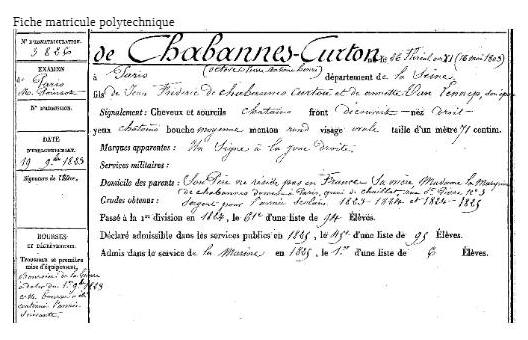 Fiche matricule polytechnique
N° D'IMMATRICULATION.
5826
EXAMEN
de Paris
Mr Poinsot
N° D'ADMISSION.
DATE
D'ENREGISTREMENT.
19 9bre 1823
Signature de l'Élève.
BOURSES
ET DÉGRÈVEMENS.
Trousseaux et première mise d'équipement.
de Chabannes-Curton né le 26 floréal an XI (16 mai 1803)
(octave pierre antoine henri)
à Paris département de la Seine,
fils de Jean Frédéric de chabannes curton et de
Signalement : Cheveux et sourcils chatains front découvert nez droit
yeux chatains bouche moyenne menton rond visage ovale taille d'un mètre 71 centim.
Marques apparentes : Un Signe à la joue droite.
Services militaires :
Domicile des parens : Son Père ne réside pas en France Sa mère Madame la Marquise
de chabannes demeure à Paris, quai de chaillot, rue St Pierre n° 3
Grades obtenus : Sergent pour l'année scolaire 1823-1824 et 1824-1825
Passé à la 1re division en 1824, le 61e d'une liste de 94 Élèves.
Déclaré admissible dans les services publics en 1825, le 45e d'une liste de 95 Élèves.
Admis dans le service de la Marine en 1825, le 1er d'une liste de 6 Élèves.